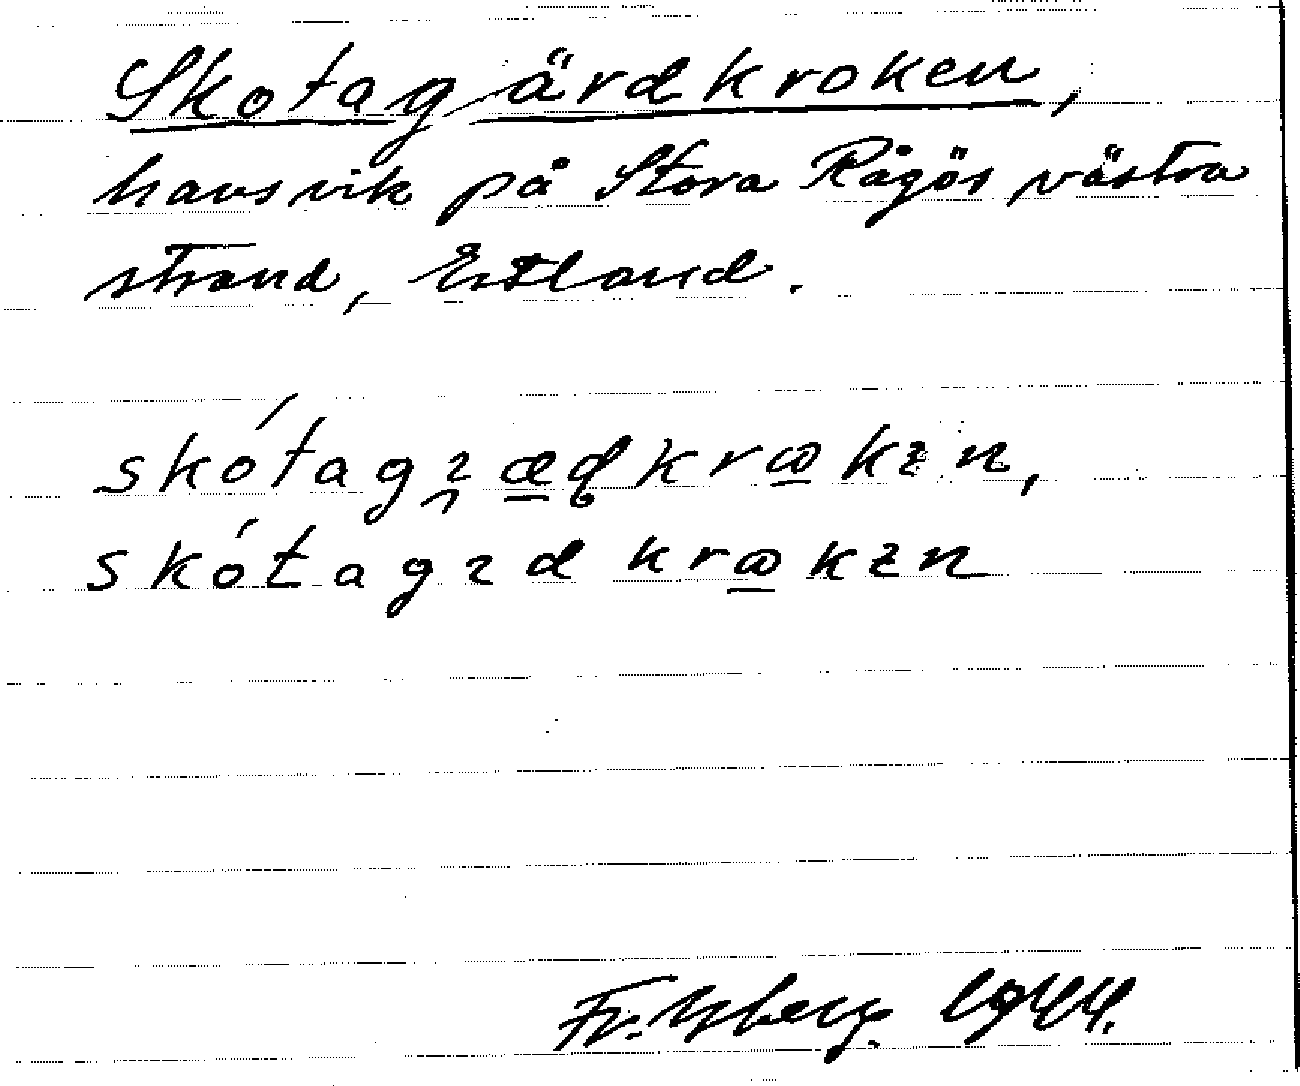 Skotagärdkroken,
havsvik på Stora Rågös västra
strand, Estland.
skótagꝛæɖkrωkɛn,
skótagꝛd krωkɛn
Fr.
1944.